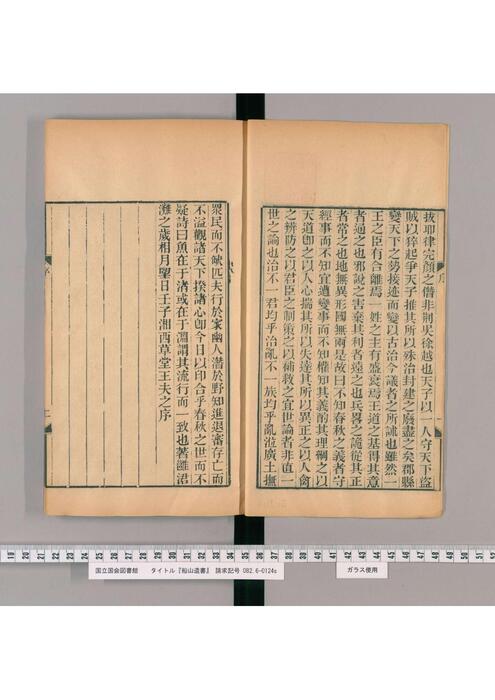 序
拔耶律完顏之僭非荆吳徐越也天子以一人守天下盜
賊以猝起爭天子推其所以殊治封建之廢盡之矣郡縣
變天下之勢接迹而變以古治今議者之所詘也雖然一
王之臣有合離焉一姓之主有盛衰焉王道之基得其意
者適之也邪說之害棄其利者遠之也兵畧之詭從其正
者常之也地無異形國無兩是故曰不知春秋之義者守
經事而不知宜遭變事而不知權知其義酌其理綱之以
天道卽之以人心揣其所以失達其所以異正之以人禽
之辨防之以君臣之制策之以補救之宜世論者非直一
世之論也治不一君均乎治亂不一族均乎亂涖廣土撫
眾民而不缺匹夫行於家幽人潛於野知進退審存亡而
不溢觀諸天下揆諸心卽今日以印合乎春秋之世而不
疑詩曰魚在于渚或在于淵謂其流行而一致也著雝涒
灘之歲相月壬子湘西草堂王夫之序
国立国会図書館 タイトル『船山遺書』 請求記号 082.6-O124s
ガラス使用